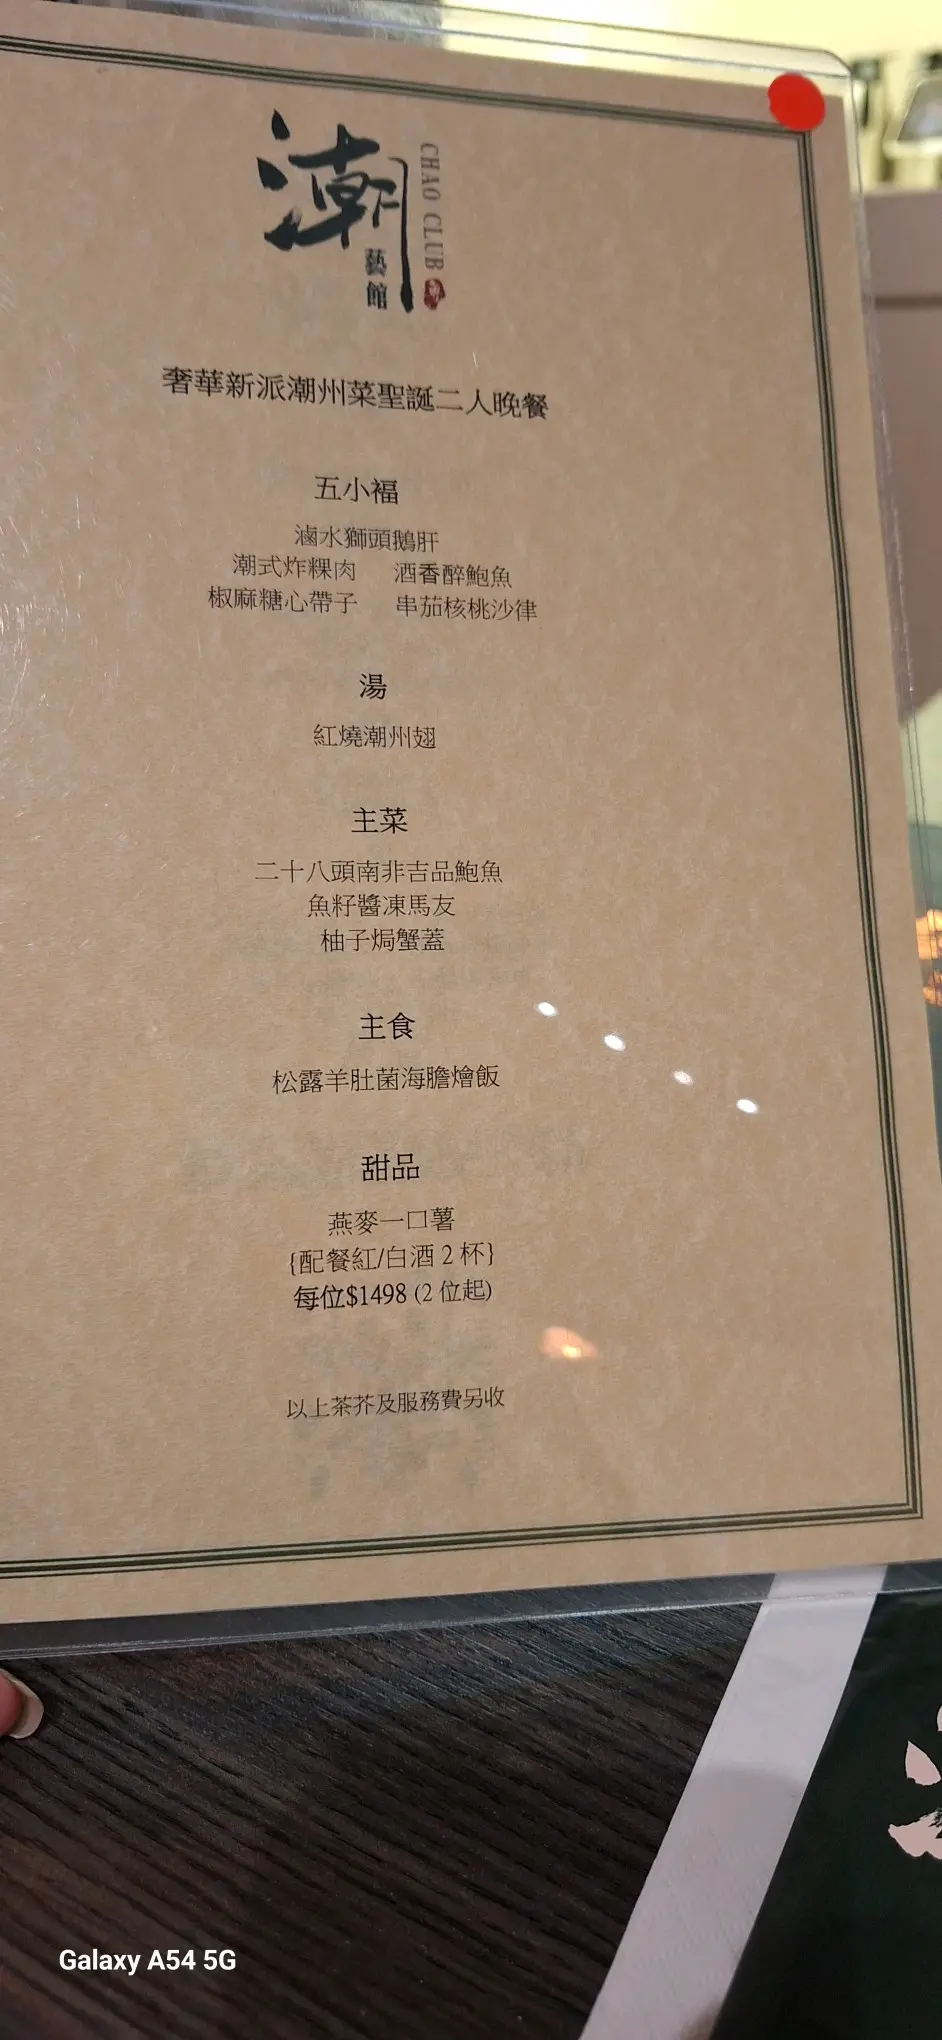 潮
藝館
CHAO CLUB
奢華新派潮州菜聖誕二人晚餐
五小福
滷水獅頭鵝肝
潮式炸粿肉 酒香醉鮑魚
椒麻糖心帶子 串茄核桃沙律
湯
紅燒潮州翅
主菜
二十八頭南非吉品鮑魚
魚籽醬凍馬友
柚子焗蟹蓋
主食
松露羊肚菌海膽燴飯
甜品
燕麥一口薯
{配餐紅/白酒 2 杯}
每位$1498 (2 位起)
以上茶芥及服務費另收
Galaxy A54 5G